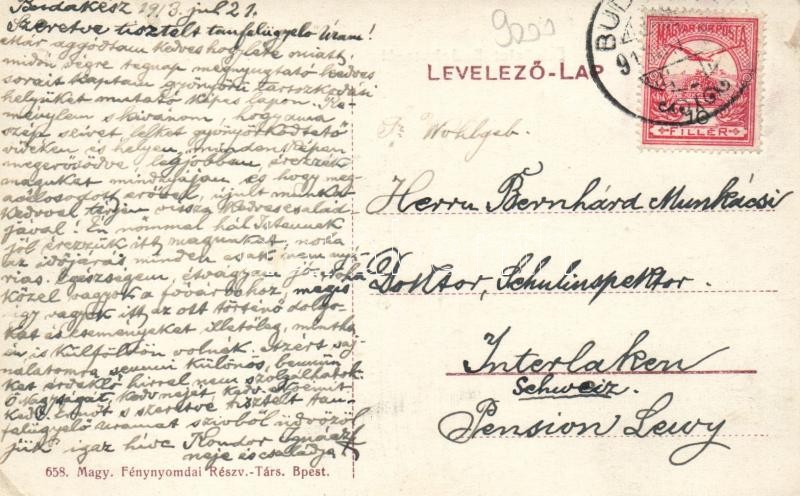 Budakesz 1913. jul 21.
Szeretve tisztelt tanfelügyelő Uram!
Már aggódtam kedves hogyléte miatt,
midőn végre tegnap megnyugtató kedves
sorait kaptam gyönyörű tartózkodási
helyüket mutató képes lapon. Re-
ménylem s kivánom, hogy ama
szép szivet, lelket gyönyörködtető
vidéken és helyen, minden képen
megerősödve legjobban érezzék
magukat mindnyájan, és hogy meg-
acélosodott erővel, újult munka-
kedvvel térjen vissza kedves család-
jával! Én nőmmel hál' Istennek
jól érezzük itt magunkat, noha
az időjárás minden csak nem nyá-
rias. Egészségem, étvágyam jó. Noha
közel vagyok a fővároshoz, mégis
úgy vagyok itt az ott történő dolgo-
kat és eseményeket illetőleg, mintha
én is külföldön volnék. Azért saj-
nálatomra semmi különös, bennün-
ket érdeklő hirrel nem szolgálhatok.
Ő Nagyságát, kedv nejét, kedv.
kedv. Ernőt s szeretve tisztelt tan-
felügyelő uramat szivből üdvözöl-
jük igaz híve Kondor Ignácz
neje és családja
658. Magy. Fénynyomdai Részv.-Társ. Bpest.
9200
LEVELEZŐ-LAP
BUD
MAGYAR KIR. POSTA
10
FILLÉR
Wohlgeb.
Herrn Bernhárd Munkácsi
Doktor, Schulinspektor.
Interlaken
Schweiz.
Pension Lewy